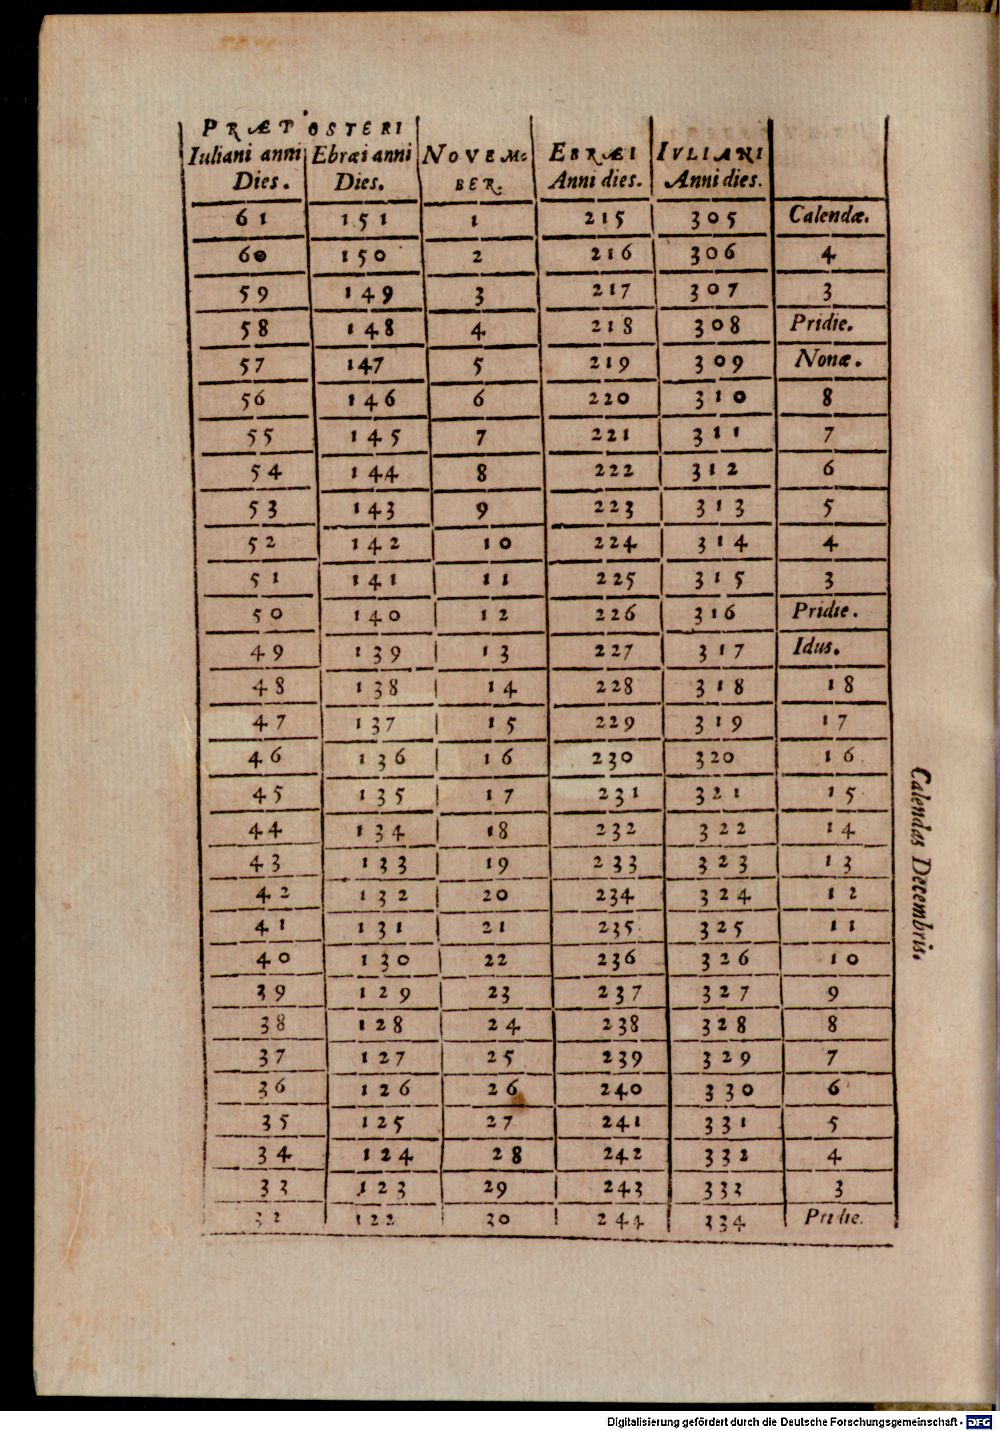 PRÆPOSTERI
Iuliani anni Ebræi anni NOVEM= EBRÆI IVLIANI
Dies. Dies. BER. Anni dies. Anni dies.
61 151 1 215 305 Calendæ.
60 150 2 216 306 4
59 149 3 217 307 3
58 148 4 218 308 Pridie.
57 147 5 219 309 Nonæ.
56 146 6 220 310 8
55 145 7 221 311 7
54 144 8 222 312 6
53 143 9 223 313 5
52 142 10 224 314 4
51 141 11 225 315 3
50 140 12 226 316 Pridie.
49 139 13 227 317 Idus.
48 138 14 228 318 18
47 137 15 229 319 17
46 136 16 230 320 16
45 135 17 231 321 15
44 134 18 232 322 14
43 133 19 233 323 13
42 132 20 234 324 12
41 131 21 235 325 11
40 130 22 236 326 10
39 129 23 237 327 9
38 128 24 238 328 8
37 127 25 239 329 7
36 126 26 240 330 6
35 125 27 241 331 5
34 124 28 242 332 4
33 123 29 243 333 3
32 122 30 244 334 Pridie.
Calendas Decembris.
Digitalisierung gefördert durch die Deutsche Forschungsgemeinschaft - DFG